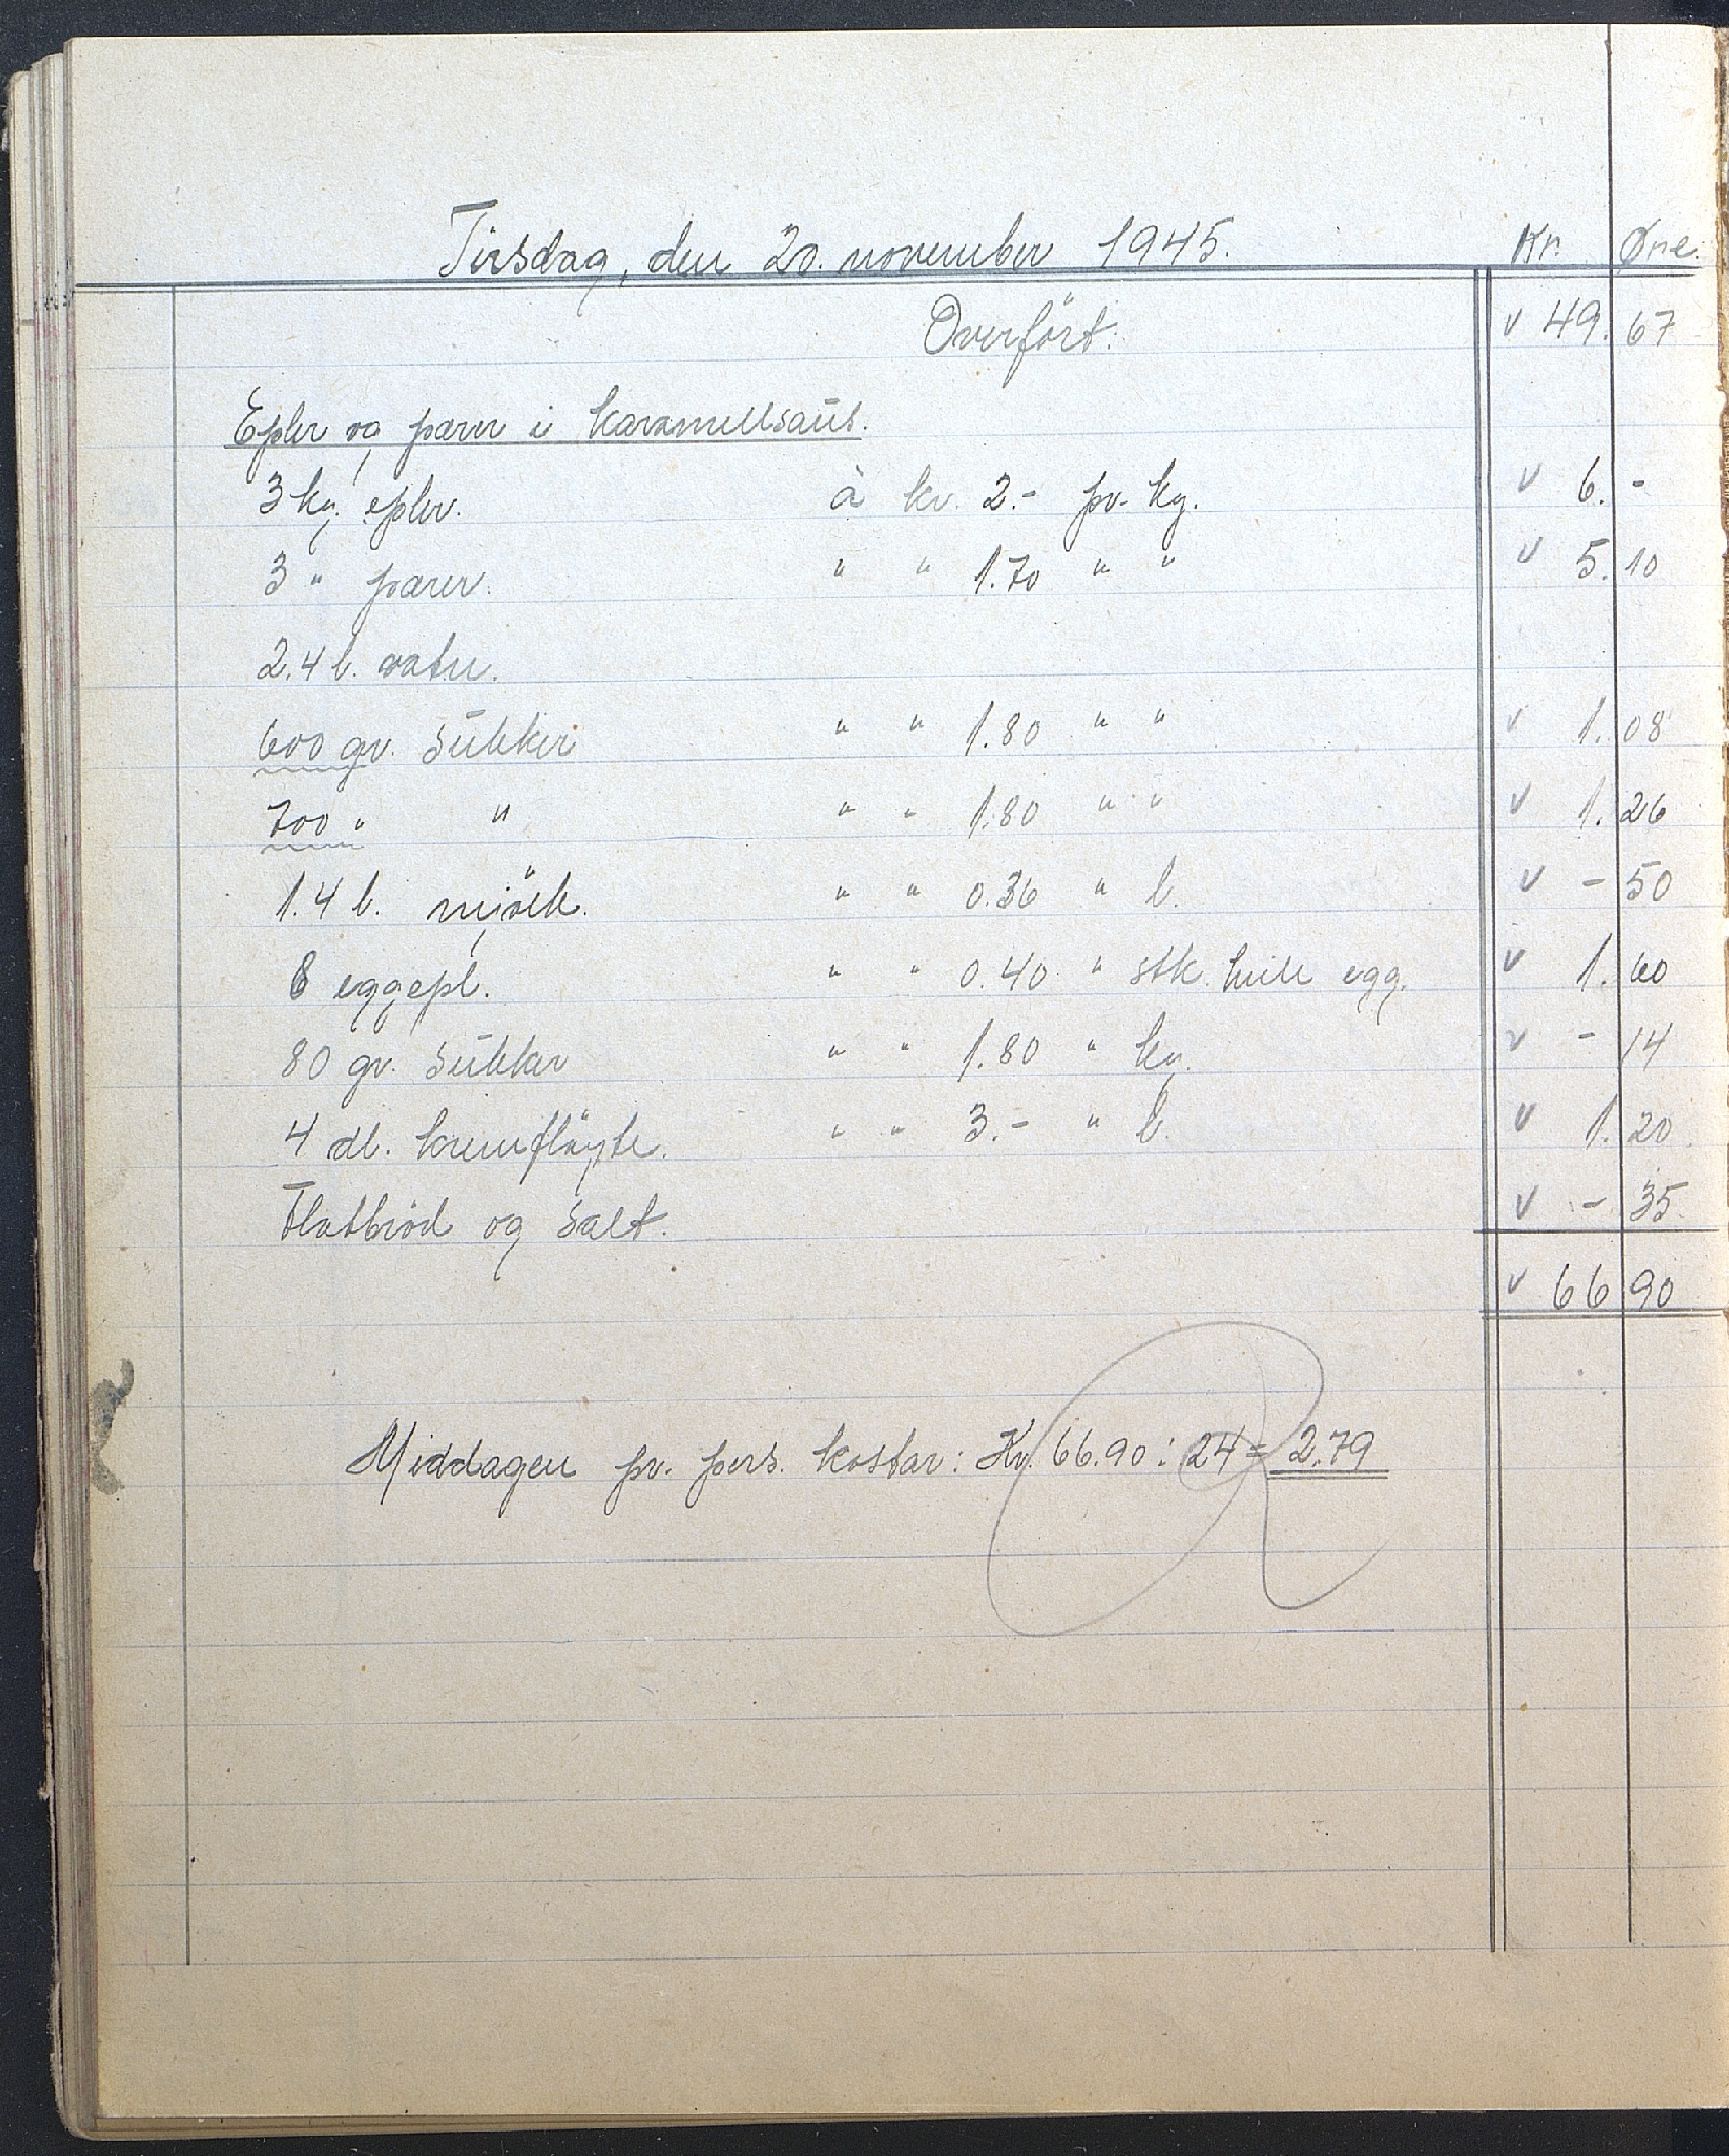 Tirsdag, den 20. november 1945. Kr. Øre.
Overfört: v 49. 67
Epler og pærer i karamellsaus.
3 kg. epler. à kr. 2.- pr. kg. v 6. -
3 " pærer. " " 1.70 " " v 5. 10
2.4 l. vatn.
600 gr. sukker " " 1.80 " " v 1. 08
700 " " " " 1.80 " " v 1. 26
1.4 l. mjölk. " " 0.36 " l. v - 50
8 eggepl. " " 0.40 " stk. heile egg. v 1. 60
80 gr. sukker " " 1.80 " kg. v - 14
4 dl. kremflöyte. " " 3.- " l. v 1. 20.
Flatbröd og salt. v - 35.
v 66 90
Middagen pr. pers. kostar: Kr. 66.90 : 24 = 2.79